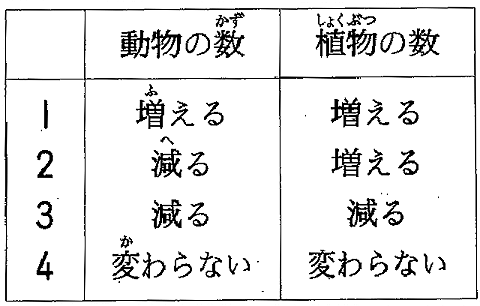 動物の数 植物の数
かず しょくぶつ
1 増える 増える
ふ
2 減る 増える
へ
3 減る 減る
4 変わらない 変わらない
か